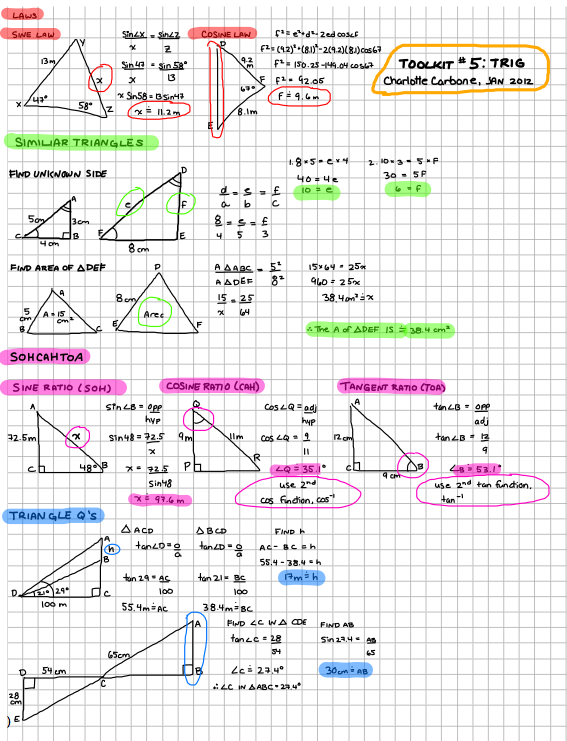 LAWS
SINE LAW
Y
13m
x
X
47°
58°
Z
Sin∠X = Sin∠Z
x z
Sin47 = Sin 58°
x 13
x Sin58 = 13 Sin47
x ≐ 11.2m
COSINE LAW
D
9.2 m
67°
F
8.1m
E
f² = e² + d² - 2ed cos∠F
F² = (9.2)² + (8.1)² - 2(9.2)(8.1)cos67
F² = 150.25 - 149.04 cos67
F² = 92.05
F ≐ 9.6m
TOOLKIT #5: TRIG
Charlotte Carbone, JAN 2012
SIMILIAR TRIANGLES
FIND UNKNOWN SIDE
A
5cm
3cm
C
B
4cm
D
e
f
F
E
8cm
d = e = f
a b c
8 = e = f
4 5 3
1. 8 x 5 = e x 4
40 = 4e
10 = e
2. 10 x 3 = 5 x F
30 = 5F
6 = F
FIND AREA OF △DEF
A
5 cm
A = 15 cm²
B
C
D
8cm
Area
E
F
A △ABC = 5²
A △DEF 8²
15 = 25
x 64
15x64 = 25x
960 = 25x
38.4cm² ≐ x
∴ The A of △DEF IS ≐ 38.4 cm²
SOHCAHTOA
SINE RATIO (SOH)
A
72.5m
x
C
48°
B
Sin∠B = opp
hyp
Sin48 = 72.5
x
x = 72.5
Sin48
x ≐ 97.6m
COSINE RATIO (CAH)
Q
9m
11m
P
R
Cos∠Q = adj
hyp
cos∠Q = 9
11
∠Q ≐ 35.1°
use 2nd
cos function, cos⁻¹
TANGENT RATIO (TOA)
A
12cm
C
9cm
B
tan∠B = opp
adj
tan∠B = 12
9
∠B ≐ 53.1°
use 2nd tan function,
tan⁻¹
TRIANGLE Q'S
A
h
B
D
21°
29°
C
100 m
△ ACD
tan∠D = o
a
tan 29 = AC
100
55.4m ≐ AC
△ BCD
tan∠D = o
a
tan21 = BC
100
38.4m ≐ BC
FIND h
AC - BC = h
55.4 - 38.4 = h
17m ≐ h
A
65cm
D
54cm
C
B
28 cm
E
)
FIND ∠C IN △ CDE
tan∠C = 28
54
∠C ≐ 27.4°
∴ ∠C IN △ABC = 27.4°
FIND AB
Sin27.4 = AB
65
30cm ≐ AB